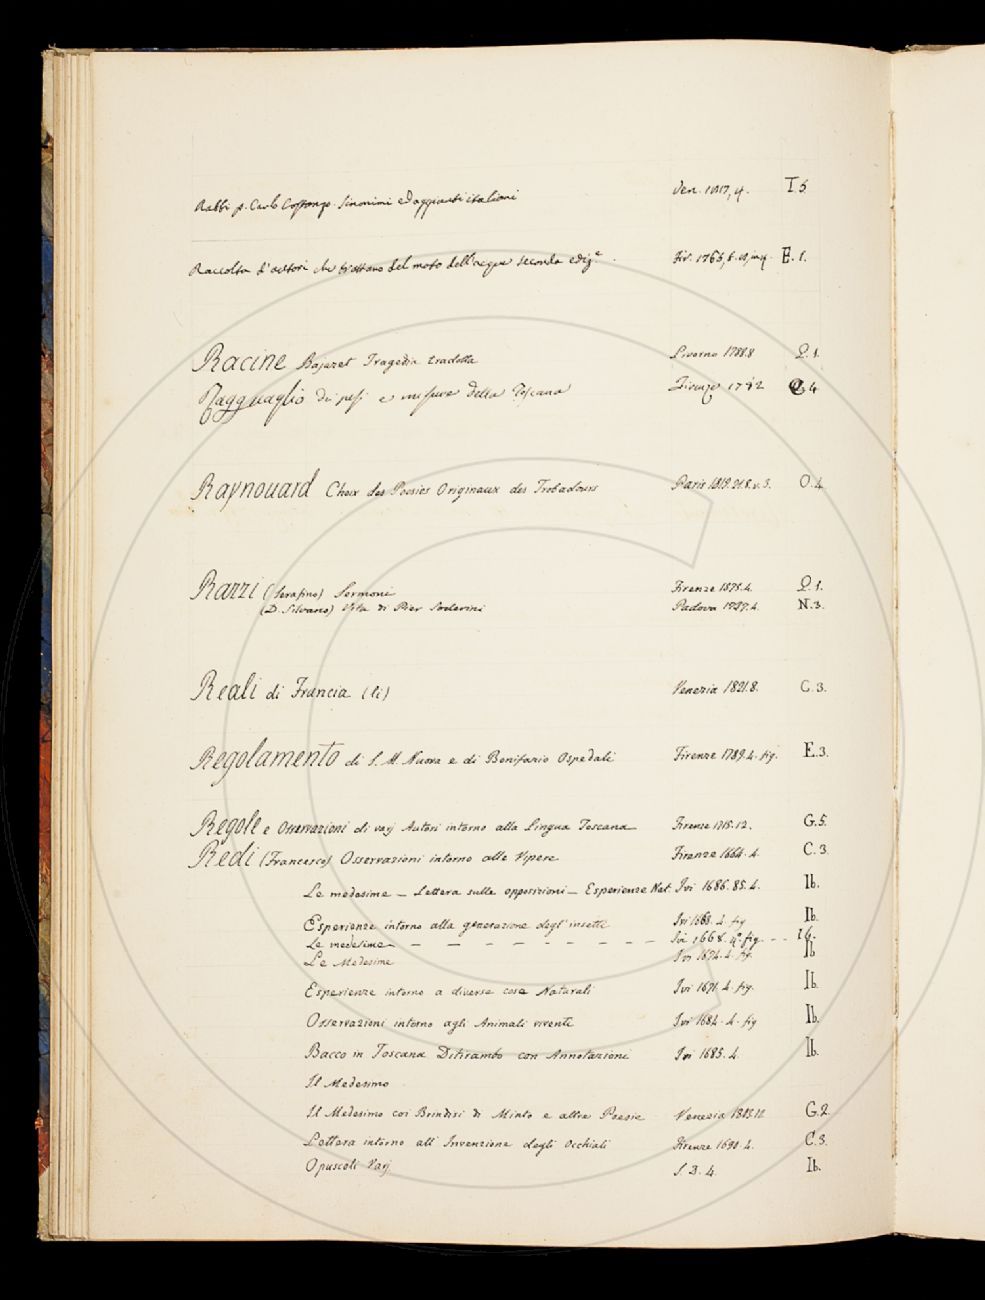 Rabbi p. Carlo Costanzo. Sinonimi ed aggiunti italiani Ven. 1817, 4. I.5
Raccolta d'autori che trattano del moto dell'acque seconda ediz.e Fir. 1765, E. 1.
Racine Bajazet Tragedia tradotta Livorno 1788.8 Q.1.
Ragguaglio di pesi e misure della Toscana Firenze 1782 4
Raynouard Choix des Poesies Originaux des Trobadours Paris 1819.21.8.v.5. O.4.
Razzi (Serafino) Sermoni Firenze 1575.4. Q.1.
(D. Silvano) Vita di Pier Soderini Padova 1737.4. N.3.
Reali di Francia (li) Venezia 1821.8. C.3.
Regolamento di S. M. Nuova e di Bonifazio Ospedali Firenze 1789.4. fig. E.3.
Regole e Osservazioni di varj Autori intorno alla Lingua Toscana Firenze 1715.12. G.5.
Redi (Francesco) Osservazioni intorno alle Vipere Firenze 1664.4. C.3.
Le medesime — Lettera sulle opposizioni — Esperienze Nat. Ivi 1686.85.4. Ib.
Esperienze intorno alla generazione degl'insetti Ivi 1668.4. fig Ib.
Le medesime — — — — — — — — Ivi 1668. 4.o fig. - - I 6.
Le Medesime Ivi 1674.4. fig. Ib
Esperienze intorno a diverse cose Naturali Ivi 1671.4. fig. Ib.
Osservazioni intorno agli Animali viventi Ivi 1684.4. fig Ib.
Bacco in Toscana Ditirambo con Annotazioni Ivi 1685.4. Ib.
Il Medesimo
Il Medesimo coi Brindisi di Minto e altre Poesie Venezia G.2.
Lettera intorno all'Invenzione degli Occhiali Firenze 1690.4. C.3.
Opuscoli Varj S.D.4. Ib.